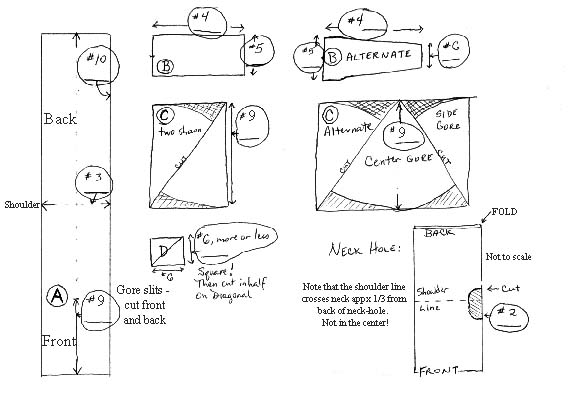 #10
Back
Shoulder
#3
A
#9
Gore slits -
cut front
and back
Front
#4
#5
B
C
two shown
CUT
#9
D
#6, more or less
#6
Square!
Then cut in half
on Diagonal
#4
#5
B ALTERNATE
#6
C
Alternate
SIDE
GORE
#9
Center GORE
CUT
CUT
FOLD
NECK HOLE:
BACK
Not to scale
Note that the shoulder line
crosses neck appx 1/3 from
back of neck-hole.
Not in the center!
Shoulder
Line
Cut
#2
FRONT